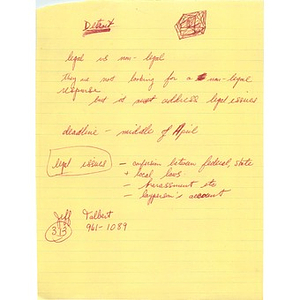 Detroit
legal vs non-legal
they are not looking for a non-legal
response
but it must address legal issues
deadline - middle of April
legal issues - confusion between federal, state
+ local laws
- harassment etc
- layperson's account
Jeff Talbert
313 961-1089